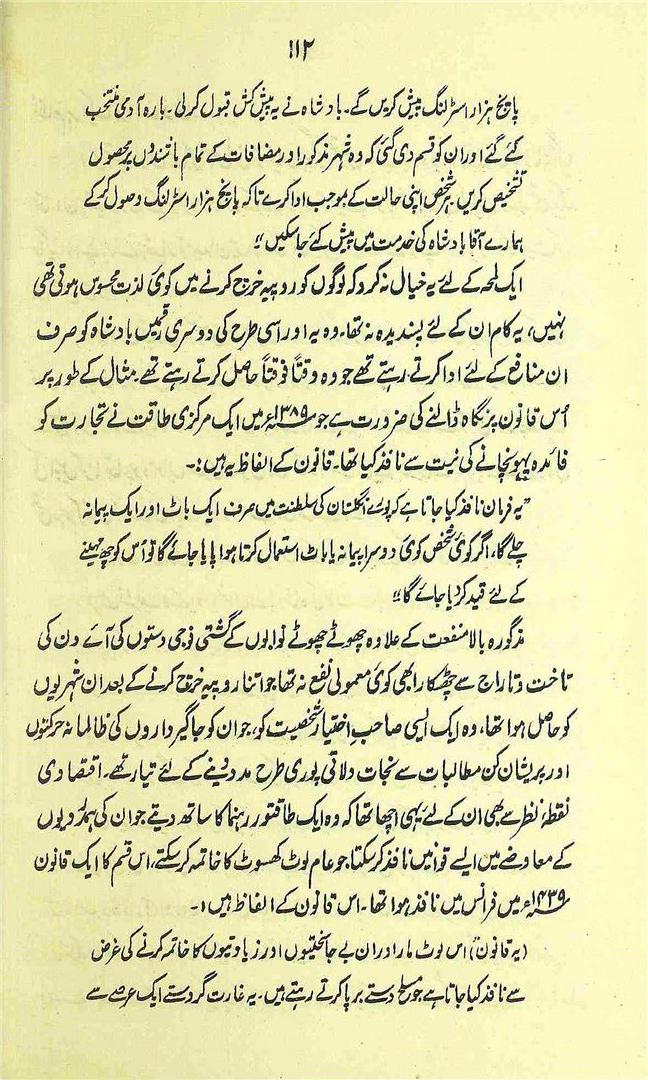 ۱۱۲
پانچ ہزار اسٹرلنگ پیش کریں گے۔ بادشاہ نے یہ پیش کش قبول کرلی۔ بارہ آدمی منتخب
کئے گئے اور ان کو قسم دی گئی کہ وہ شہر مذکور اور مضافات کے تمام باشندوں پر محصول
تشخیص کریں۔ ہر شخص اپنی حالت کے بموجب ادا کرے تاکہ پانچ ہزار اسٹرلنگ وصول کر کے
ہمارے آقا بادشاہ کی خدمت میں پیش کئے جاسکیں "
ایک لمحہ کے لئے یہ خیال نہ کرو کہ لوگوں کو روپیہ خرچ کرنے میں کوئی لذت محسوس ہوتی تھی
نہیں، یہ کام ان کے لئے پسندیدہ نہ تھا۔ وہ یہ اور اسی طرح کی دوسری رقمیں بادشاہ کو صرف
ان منافع کے لئے ادا کرتے رہتے تھے جو وہ وقتاً فوقتاً حاصل کرتے رہتے تھے۔ مثال کے طور پر
اُس قانون پر نگاہ ڈالنے کی ضرورت ہے جو ۱۳۸۹ء میں ایک مرکزی طاقت نے تجارت کو
فائدہ پہونچانے کی نیت سے نافذ کیا تھا۔ قانون کے الفاظ یہ ہیں :۔
"یہ فرمان نافذ کیا جاتا ہے کہ پورے انگلستان کی سلطنت میں صرف ایک باٹ اور ایک پیمانہ
چلے گا، اگر کوئی شخص کوئی دوسرا پیمانہ یا باٹ استعمال کرتا ہوا پایا جائے گا تو اُس کو چھ مہینے
کے لئے قید کر دیا جائے گا "
مذکورہ بالا منفعت کے علاوہ چھوٹے چھوٹے نوابوں کے گشتی فوجی دستوں کی آئے دن کی
تاخت و تاراج سے چھٹکارا بھی کوئی معمولی نفع نہ تھا جو اتنا روپیہ خرچ کرنے کے بعد ان شہریوں
کو حاصل ہوا تھا، وہ ایک ایسی صاحبِ اختیار شخصیت کو، جو ان کو جاگیرداروں کی ظالمانہ حرکتوں
اور پریشان کن مطالبات سے نجات دلاتی پوری طرح مدد دینے کے لئے تیار تھے۔ اقتصادی
نقطۂ نظر سے بھی ان کے لئے یہی اچھا تھا کہ وہ ایک طاقتور رہنما کا ساتھ دیتے جو ان کی ہمدردیوں
کے معاوضے میں ایسے قوانین نافذ کر سکتا جو عام لوٹ کھسوٹ کا خاتمہ کر سکتے، اس قسم کا ایک قانون
۱۴۳۹ء میں فرانس میں نافذ ہوا تھا۔ اس قانون کے الفاظ ہیں :۔
(یہ قانون) اس لوٹ مار اور ان بے جا سختیوں اور زیادتیوں کا خاتمہ کرنے کی غرض
سے نافذ کیا جاتا ہے جو مسلح دستے برپا کرتے رہتے ہیں۔ یہ غارت گر دستے ایک عرصے سے